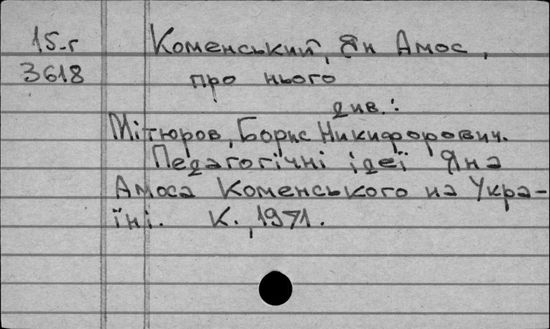 15-г Коменський, Ян Амос,
3618 про нього
див.:
Мітюров, Борис Никифорович.
Педагогічні ідеї Яна
Амоса Коменського на Укра-
їні. К., 1971.